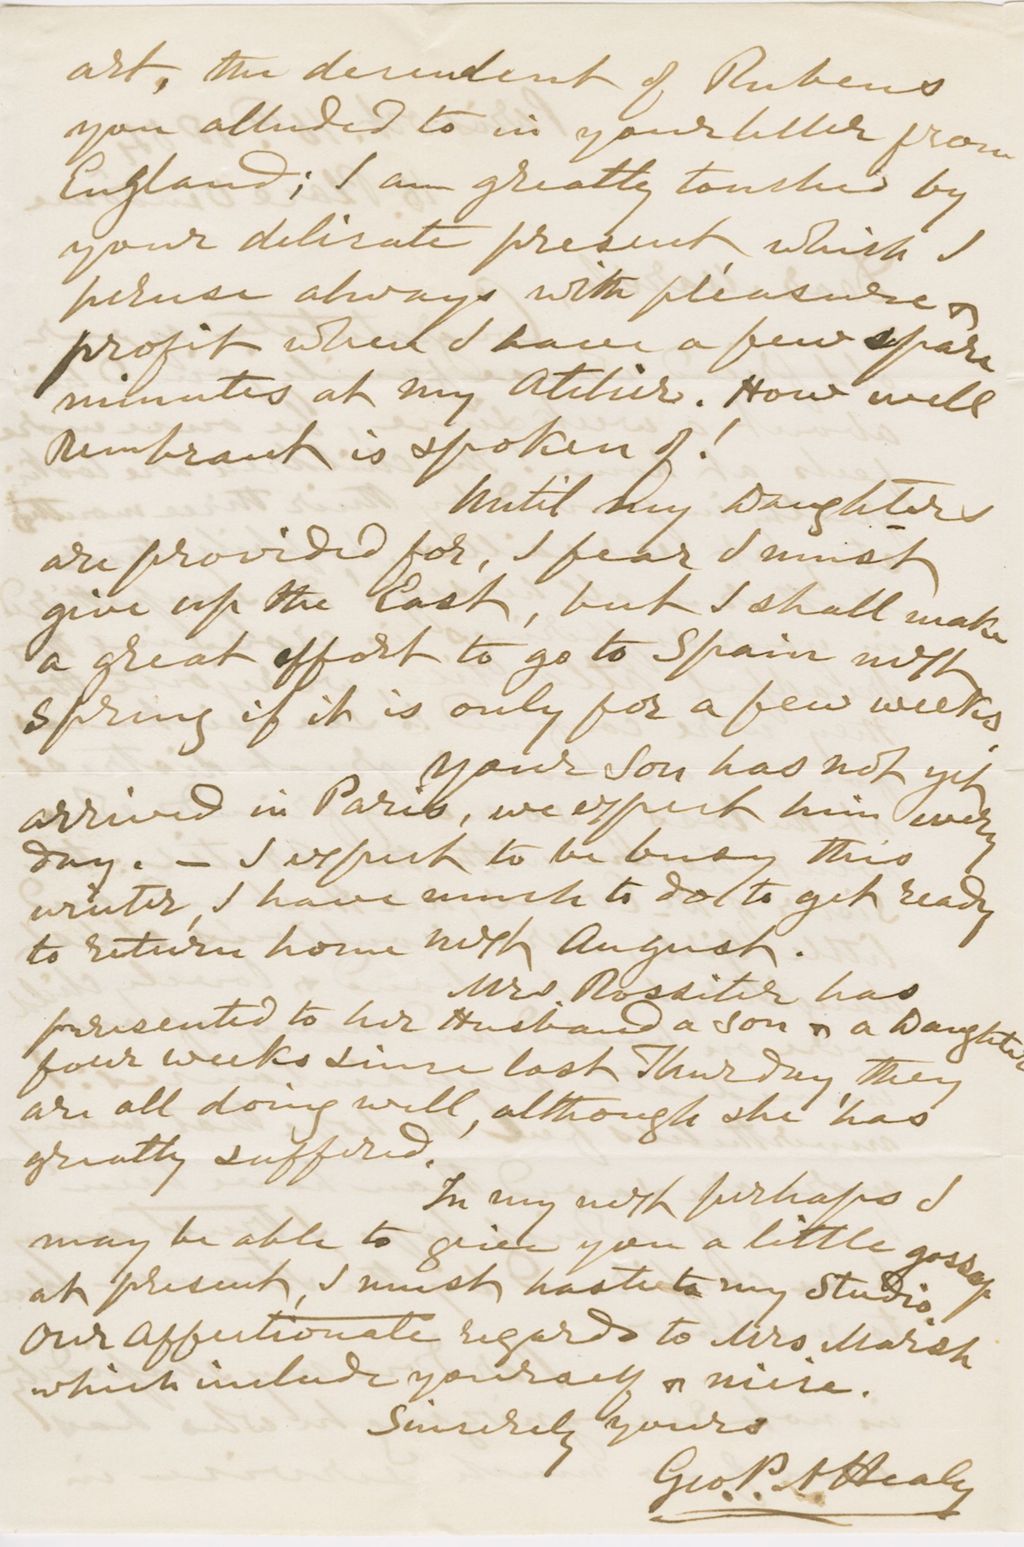 art, the decendent of Rubens
you alluded to in your letter from
England; I am greatly touched by
your delicate present, which I
peruse always with pleasure &
profit when I have a few spare
minutes at my Atelier. How well
Rembrant is spoken of!
Until my Daughters
are provided for, I fear I must
give up the East, but I shall make
a great effort to go to Spain next
Spring if it is only for a few weeks.
Your Son has not yet
arrived in Paris, we expect him every
day. – I expect to be busy this
winter, I have much to do to get ready
to return home next August.
Mrs Rossiter has
presented to her Husband a Son & a Daughter
four weeks since last Thursday, they
are all doing well, although she has
greatly suffered.
In my next perhaps I
may be able to give you a little gossop
at present, I must haste to my Studio.
Our affectionate regards to Mrs Marsh
which include yourself & niece.
Sincerely yours
Geo. P. A Healy